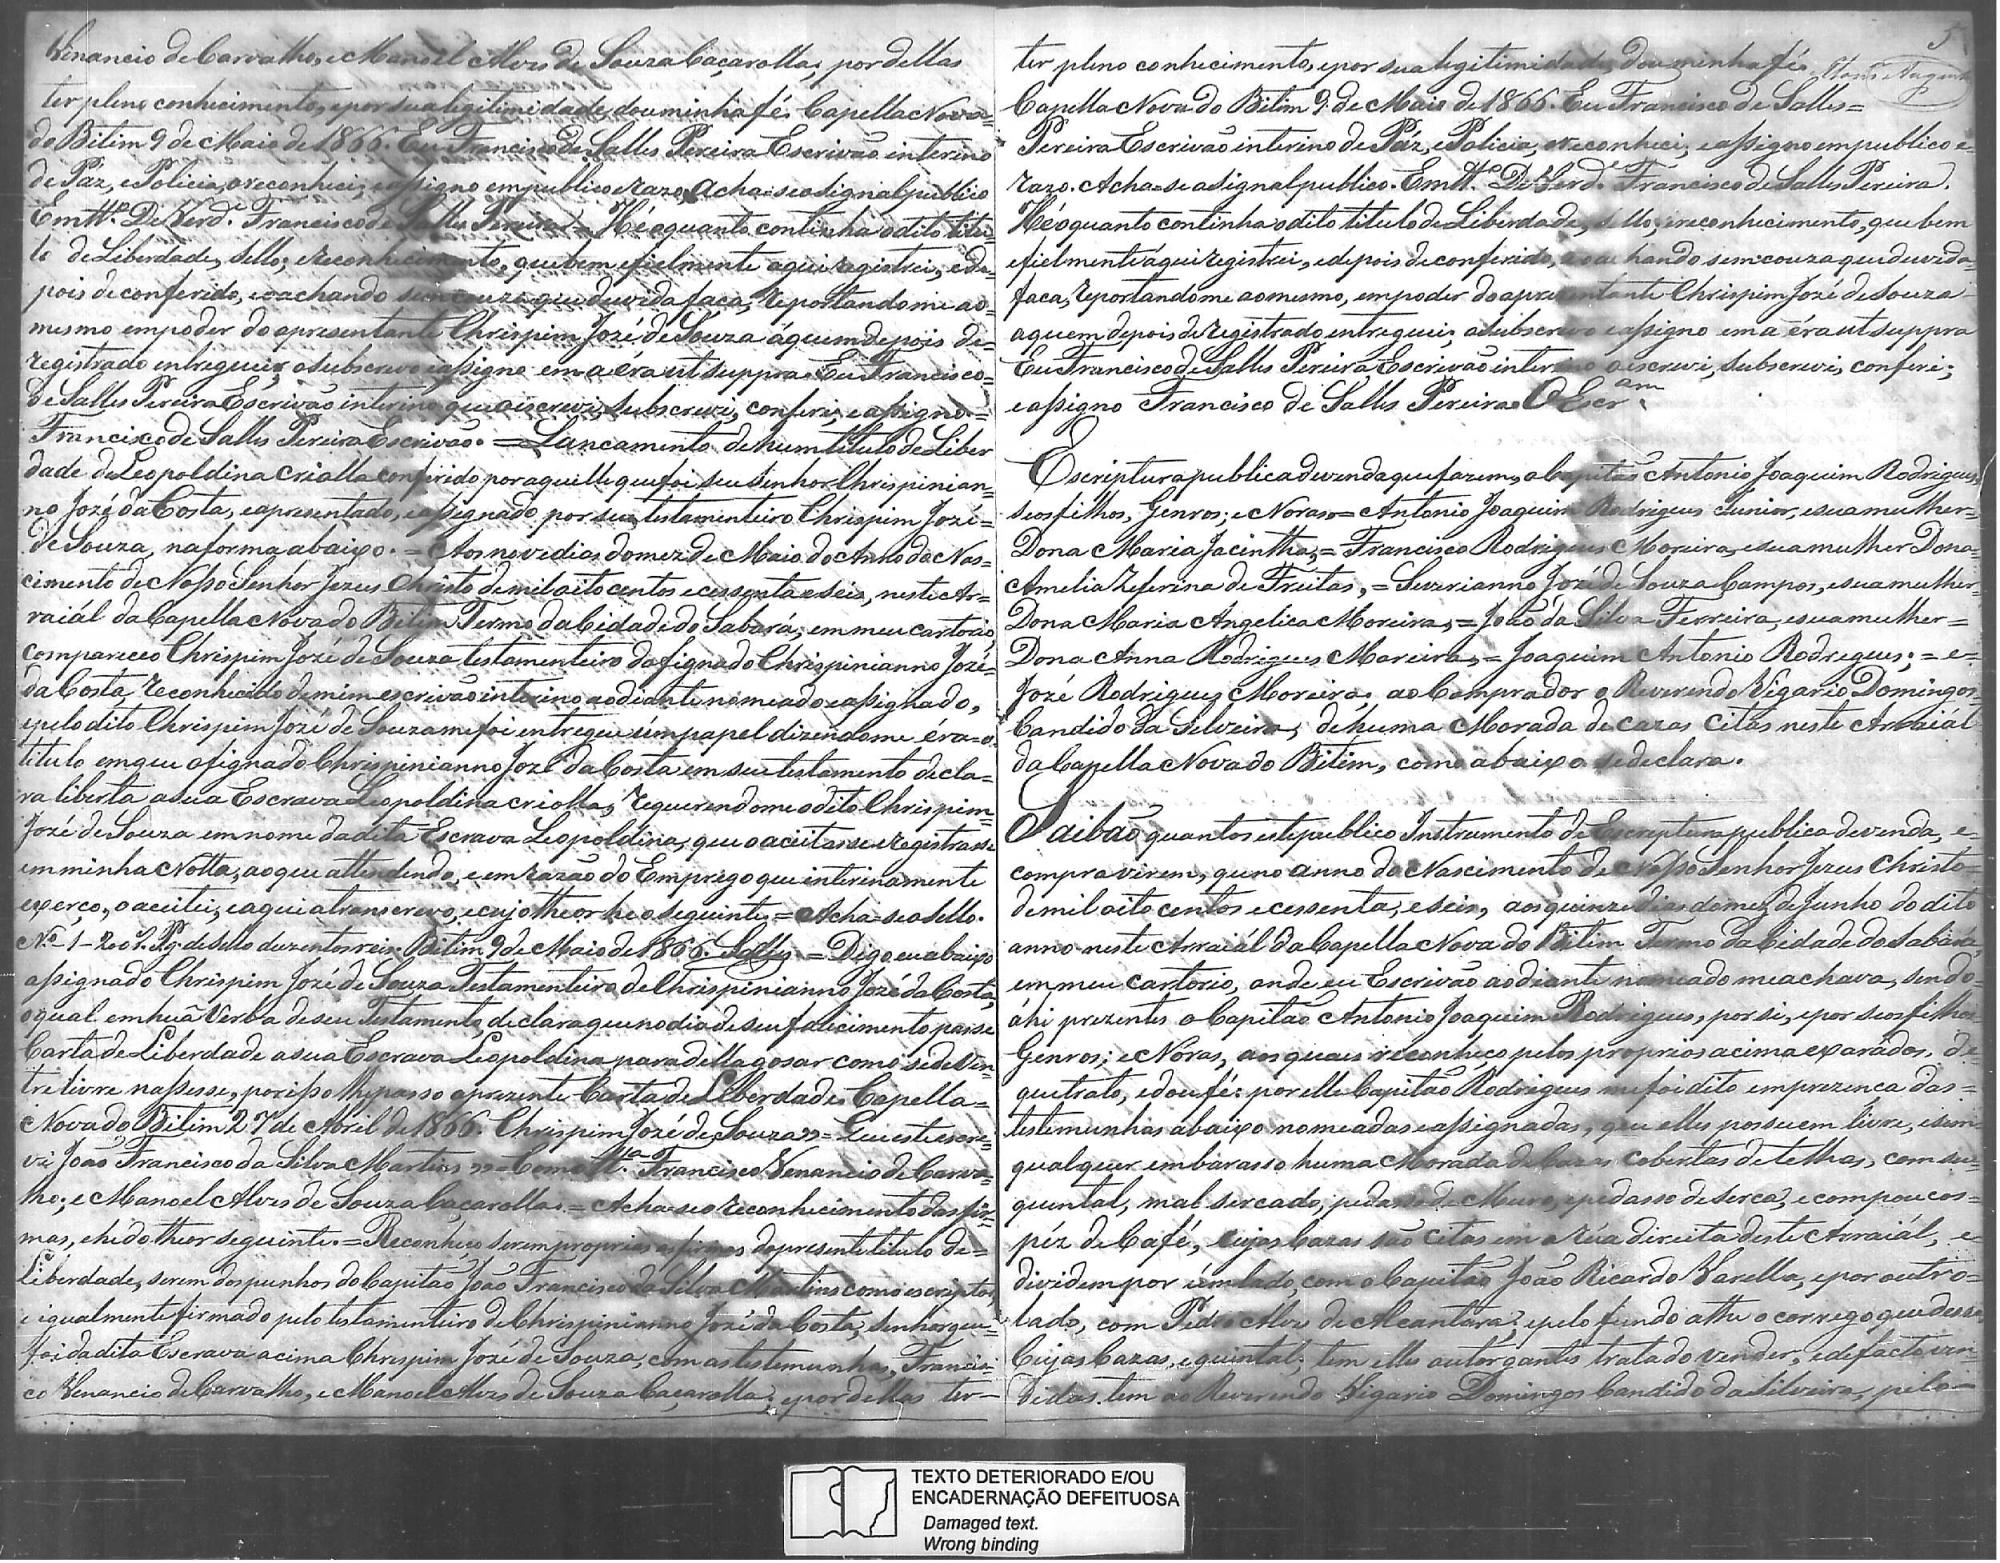 Venancio de Carvalho, e Manoel Alves de Souza Caçarolla; por dellas
ter pleno conhecimento, e por sua legitimidade, dou minha fé. Capella Nova
do Bitim 9 de Maio de 1866. Eu Francisco de Salles Pereira Escrivão interino
de Páz, e Policia, o reconheci; e assigno em publico e razo. Acha-se o signal publico
Em ttº De Verdᵉ. Francisco de Salles Pereira = Hé o quanto continha o dito titu-
lo de Liberdade, sello; e reconhecimento, que bem e fielmente aqui registrei, e de-
pois de conferido, e o achando sem couza que duvida faça, reportandome ao
mesmo em poder do apresentante Chrispim Jozé de Souza á quem depois de-
registrado entreguei; o subscrevo e assigno em a éra ut suppra. Eu Francisco=
de Salles Pereira Escrivão interino que o iscrevi, subscrevi, conferi; e assigno.=
Francisco de Salles Pereira Escrivão. = Lancamento de hum titulo de Liber
dade de Leopoldina criolla conferido por aquelle que foi seu Senhor Chrispinian-
no Jozé da Costa, e apresentado, e assignado por seu testamenteiro Chrispim Jozé=
de Souza, na forma abaixo. = Aos nove dias do mez de Maio do Anno do Nas=
cimento de Nosso Senhor Jezus Christo de mil oito centos e cessenta e seis, neste Ar=
raiál da Capella Nova do Bitim Termo da Cidade do Sabará, em meu cartorio
compareceo Chrispim Jozé de Souza testamenteiro do finado Chrispinianno Jozé-
da Costa, reconhecido de mim escrivão interino ao diante nomeado e assignado,
e pelo dito Chrispim Jozé de Souza me foi entregue úm papel dizendome éra o
titulo em que o finado Chrispinianno Jozé da Costa em seu testamento decla=
ra liberta a sua Escrava Leopoldina criolla, requerendome o dito Chrispim=
Jozé de Souza em nome da dita Escrava Leopoldina, que o aceitasse e registrasse
em minha Notta, ao que attendendo, e em razão do Emprego que interinamente
exerço, o aceitei; e aqui a transcrevo, e cujo theor he o seguinte = Acha-se o sello.
Nº 1 - 200 rˢ. Pg. de sello duzentos reis. Bitim 9 de Maio de 1866. Salles = Digo eu abaixo
assignado Chrispim Jozé de Souza Testamenteiro de Chrispinianno Jozé da Costa,
o qual em huã Verba de seu Testamento, declara que no dia de seu falicimento passe
Carta de Liberdade a sua Escrava Leopoldina para della gosar como se de Ven-
tre livre nassesse, por isso lhe passo a prezente Carta de Liberdade. Capella=
Nova do Bitim 27 de Abril de 1866. Chrispim Jozé de Souza = Que este escre-
vi João Francisco da Silva Martins = Como ttª. Francisco Venancio de Carva-
lho; e Manoel Alves de Souza Caçarolla. = Acha-se o reconhecimento das fir-
mas, e he do theor seguinte. = Reconheço serem proprias as firmas do presente titulo de=
Liberdade, serem dos punhos do Capitão João Francisco da Silva Martins como escriptor,
e igualmente firmado pelo testamenteiro de Chrispinianno Jozé da Costa, Senhor que
foi da dita Escrava acima Chrispim Jozé de Souza, com as testemunhas, Francis-
co Venancio de Carvalho, e Manoel Alves de Souza Caçarolla; e por dellas ter—
5
ter pleno conhecimento, e por sua legitimidade, dou minha fé.
Capella Nova do Bitim 9 de Maio de 1866. Eu Francisco de Salles=
Pereira Escrivão interino de Páz, e Policia, o reconheci; e assigno em publico e-
razo. Acha-se o signal publico. Em ttº. De Verdᵉ. Francisco de Salles Pereira.
Hé o quanto continha o dito titulo de Liberdade, sello, e reconhecimento, que bem
e fielmente áqui registrei, e depois de conferido, e o achando sem couza que duvida-
faca, reportandome ao mesmo, em poder do aprezentante Chrispim Jozé de Souza
a quem depois de registrado entreguei; o subscrevo e assigno em a éra ut suppra
Eu Francisco de Salles Pereira Escrivão interino o iscrevi, subscrevi, conferi;
e assigno Francisco de Salles Pereira O Escr.ᵃᵐ
Escriptura publica de venda que fazem, o Capitão Antonio Joaquim Rodrigues,
seos filhos, Genros; e Noras = Antonio Joaquim Rodrigues Junior, e sua mulher=
Dona Maria Jacintha, = Francisco Rodrigues Moreira, e sua mulher Dona=
Amelia Zeferina de Freitas, = Severianno Jozé de Souza Campos, e sua mulher-
Dona Maria Angelica Moreira, = João da Silva Ferreira, e sua mulher=
Dona Anna Rodrigues Moreira, = Joaquim Antonio Rodrigues; = e=
Jozé Rodrigues Moreira; ao Comprador o Reverendo Vigario Domingos
Candido da Silveira, de huma Morada de cazas citas neste Arraiál
da Capella Nova do Bitim, como abaixo se declara.
Saibão quantos este publico Instrumento de Escriptura publica de venda, e
compra virem, que no anno do Nascimento de Nosso Senhor Jezus Christo
de mil oito centos e cessenta, e seis, aos quinze dias do mez de Junho do dito
anno neste Arraiál da Capella Nova do Bitim Termo da Cidade do Sabará,
em meu cartorio, onde eu Escrivão ao diante nomeado me achava, sendo-
áhi prezentes o Capitão Antonio Joaquim Rodrigues, por si, e por seos filhos
Genros; e Noras, aos quaes reconheço pelos proprios acima exarados, de=
que trato, e dou fé: por elle Capitão Rodrigues me foi dito em prezença das=
testemunhas abaixo nomeadas e assignadas, que elles possuem livre, e sem
qualquer embarasso huma Morada de Cazas cobertas de telhas, com seu
quintal, mal sercado, pedasso de Muro, e pedasso de serca, e com poucos-
péz de Café, cujas Cazas são citas em a rúa direita deste Arraiál, e-
dividem por úm lado, com o Capitão João Ricardo Varella, e por outro-
lado, com Pedro Alves de Alcantara; e pelo fundo athe o corrego que desse
Cujas Cazas, e quintal; tem elles outorgantes tratado vender, e de facto ven-
didas tem ao Reverendo Vigario Domingos Candido da Silveira, pelo—
TEXTO DETERIORADO E/OU
ENCADERNAÇÃO DEFEITUOSA
Damaged text.
Wrong binding